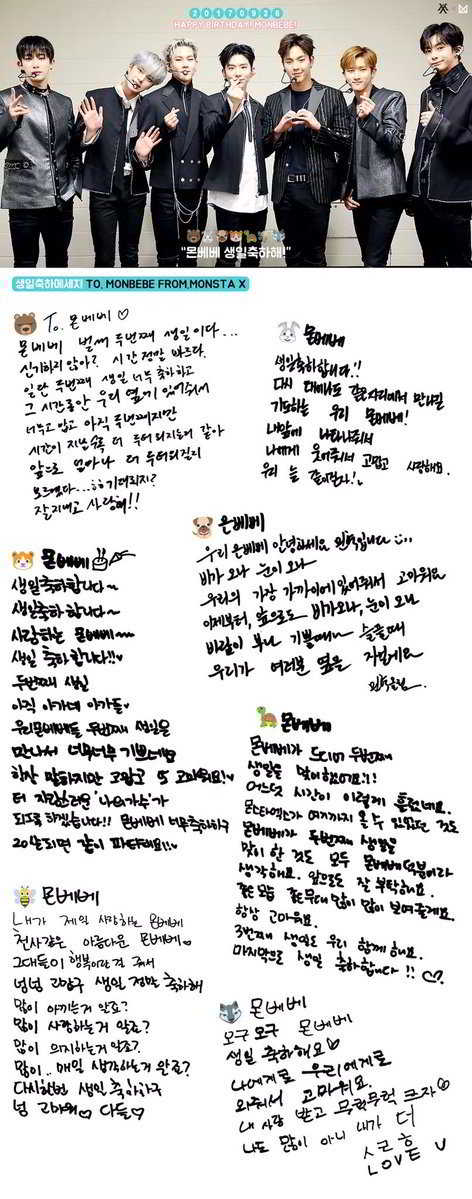 20170926
HAPPY BIRTHDAY! MONBEBE!
"몬베베 생일축하해!"
생일축하메세지 TO. MONBEBE FROM.MONSTA X
To. 몬베베 ♡
몬베베 벌써 두번째 생일이다...
신기하지 않아? 시간 정말 빠르다.
일단 두번째 생일 너무 축하하고
그 시간동안 우리 옆에 있어줘서
너무 고맙고 아직 두번째지만
시간이 지날수록 더 두터워지는거 같아
앞으로 얼마나 더 두터워질지
모르겠다...ㅎㅎ 기대되지?
잘지내고 사랑해!!
몬베베
생일축하합니다!!
다시 태어나도 같은자리에서 만나길
기도하는 우리 몬베베!
내앞에 나타나줘서
나에게 웃어줘서 고맙고 사랑해요.
우리 늘 같이한다!
몬베베
우리 몬베베 안녕하세요 입니다
비가 오나 눈이 오나
우리의 가장 가까이에 있어줘서 고마워요
이제부터, 앞으로도 비가오나, 눈이 오나
바람이 부나 기쁠때나 슬플때
우리가 여러분 옆을 지킬게요
몬베베
생일축하합니다~
생일축하합니다~
사랑하는 몬베베~
생일 축하합니다!!♥
두번째 생일
아직 아가네 아가들♥
우리몬베베들 두번째 생일을
만나서 너무너무 기쁘네요
항상 말하지만 고맙고 또 고마워요!♥
더 자랑스러운 '나의가수'가
되도록 하겠습니다!! 몬베베 너무축하하구
20살되면 같이 파티해요!!♥
몬베베
몬베베가 드디어 두번째
생일을 맞이했어요!!
어느덧 시간이 이렇게 흘렀네요.
몬스타엑스가 여기까지 올 수 있었던 것도
몬베베가 두번째 생일을
맞이 한 것도 모두 몬베베 덕분이라
생각해요. 앞으로도 잘 부탁해요.
좋은모습 좋은무대 많이 많이 보여줄게요.
항상 고마워요.
3번째 생일도 우리 함께 해요.
마지막으로 생일 축하합니다!! ♡
몬베베
내가 제일 사랑하는 몬베베
천사같은, 아름다운 몬베베♡
그대들이 행복이란걸 줘서
넘넘 고맙구 생일 정말 축하해
많이 아끼는거 알죠?
많이 사랑하는거 알죠?
많이 의지하는거 알죠?
많이.. 매일 생각하는거 알죠?
다시한번 생일 축하하구
넘 고마워♡ 다들♡
몬베베
오구오구 몬베베
생일 축하해요♡
나에게로 우리에게로
와줘서 고마워요.
내 사랑 받고 무럭무럭 크자♡
나도 많이 아니 내가 더
LOVE U